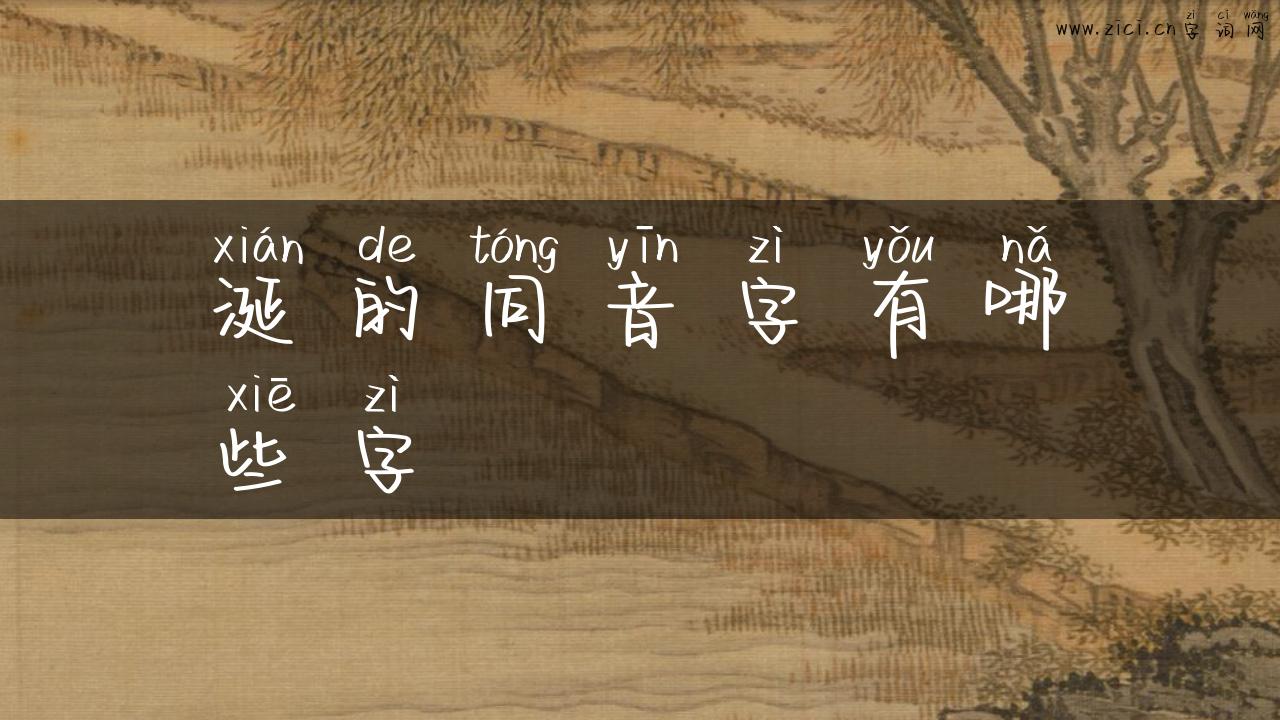 zì cí wǎng
www.zici.cn字词网
xián de tóng yīn zì yǒu nǎ
涎的同音字有哪
xiē zì
些字